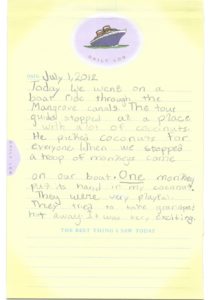 DAILY LOG
DATE July 1, 2012
Today we went on a
boat ride through the
Mangrove canals. The tour
guide stopped at a place
with a lot of coconuts.
He picked coconuts for
everyone. When we stopped
a troop of monkeys came
on our boat. One monkey
put its hand in my coconut.
They were very playful.
They tried to take grandpa's
hat away. It was very exciting.
THE BEST THING I SAW TODAY